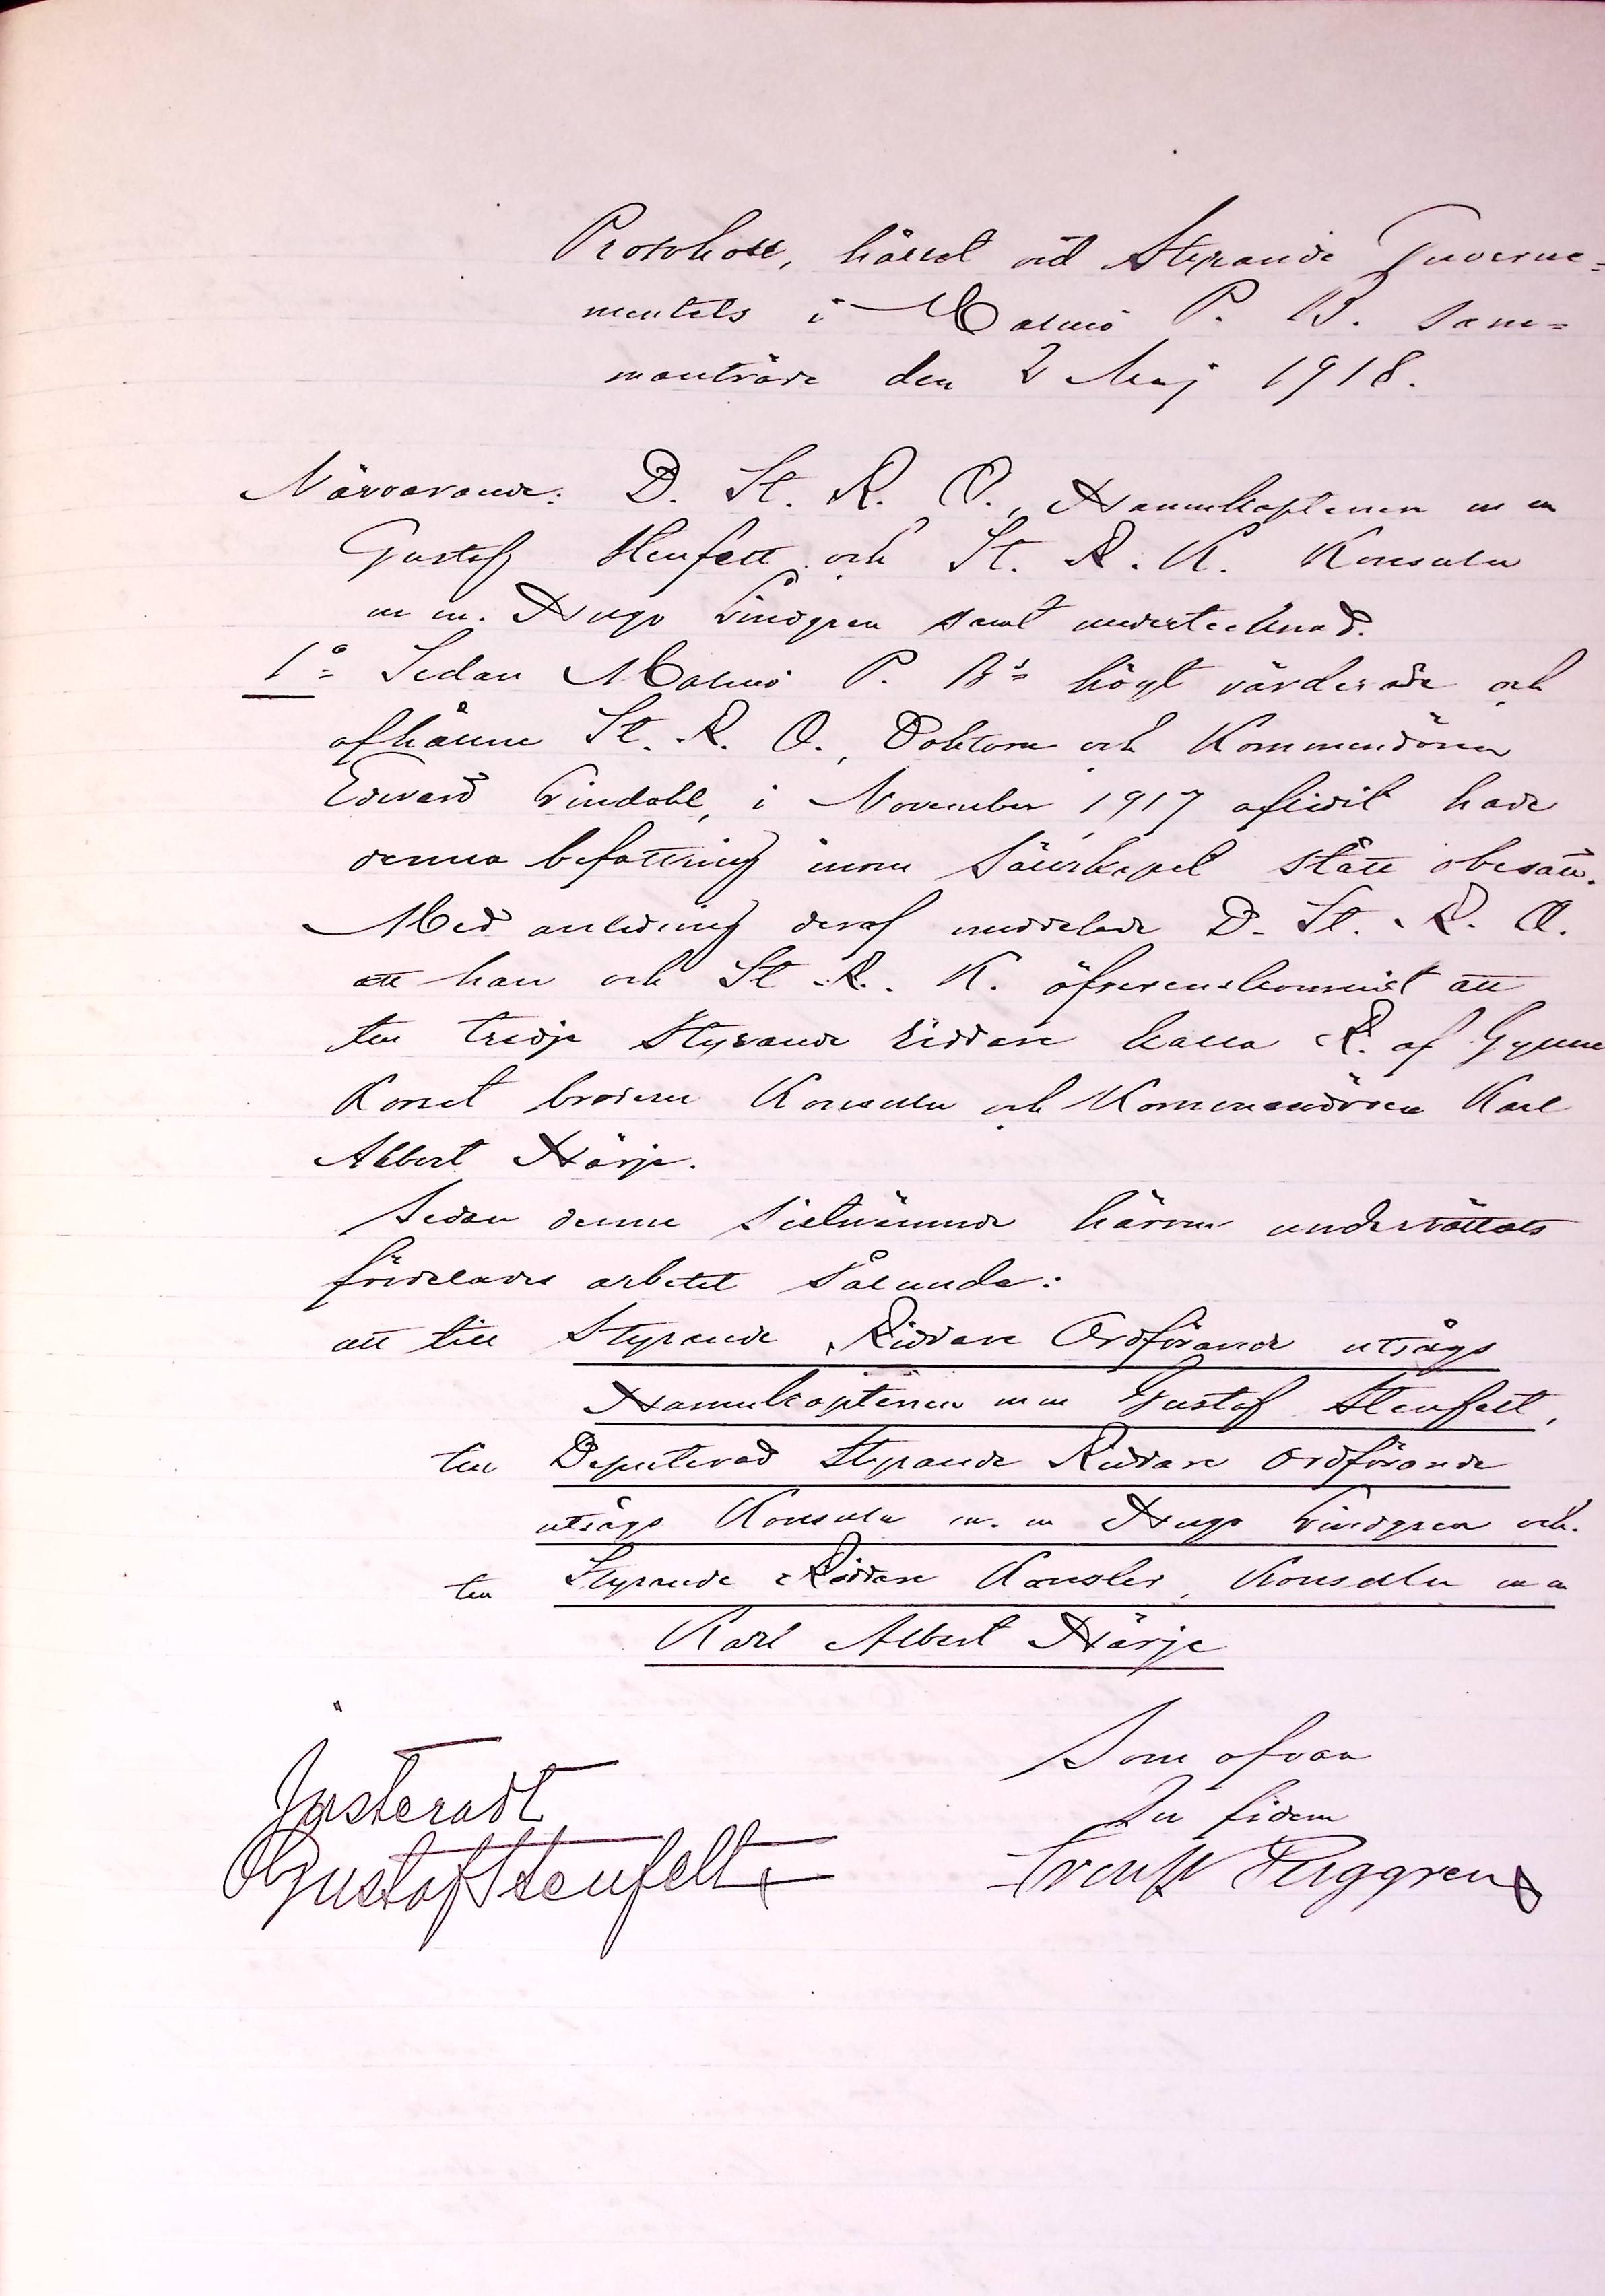 Protokoll, hållet vid Styrande Guverne=
mentets i Malmö P. B. sam=
manträde den 2 Maj 1918.
Närvarande: D. St. R. O., Hamnkaptenen m m
Gustaf Stenfelt och St. R. K. Konsuln
m m. Hugo Lindgren samt undertecknad.
1º Sedan Malmö P. B:s högt värderade och
afhållne St. R. O., Doktorn och Kommendören
Edvard Lindahl, i November 1917 aflidit hade
denna befattning inom Sällskapet stått obesatt.
Med anledning deraf meddelade D. St. R. O.
att han och St. R. K. öfverenskommit att
till tredje Styrande Riddare kalla R. af Gyllene
Korset brodern Konsuln och Kommendören Karl
Albert Härje.
Sedan denne sistnämnde härom underrättats
fördelades arbetet sålunda:
att till Styrande Riddare Ordförande utsågs
Hamnkaptenen m m Gustaf Stenfelt,
till Deputerad Styrande Riddare Ordförande
utsågs Konsuln m. m Hugo Lindgren och
till Styrande Riddare Kansler, Konsuln m m
Karl Albert Härje
Som ofvan
In fidem
Justeradt
Gustaf Stenfelt
Berggren